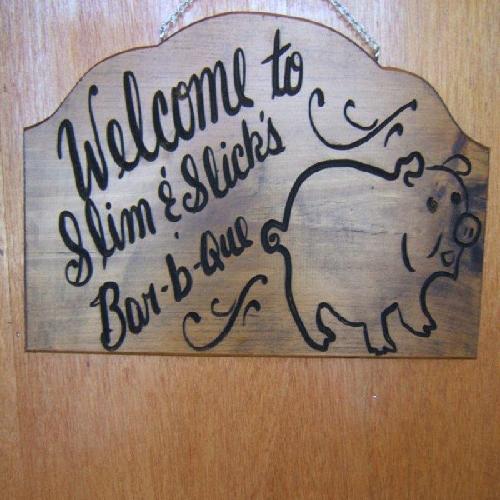 Welcome to
Slim & Slick's
Bar-b-Que